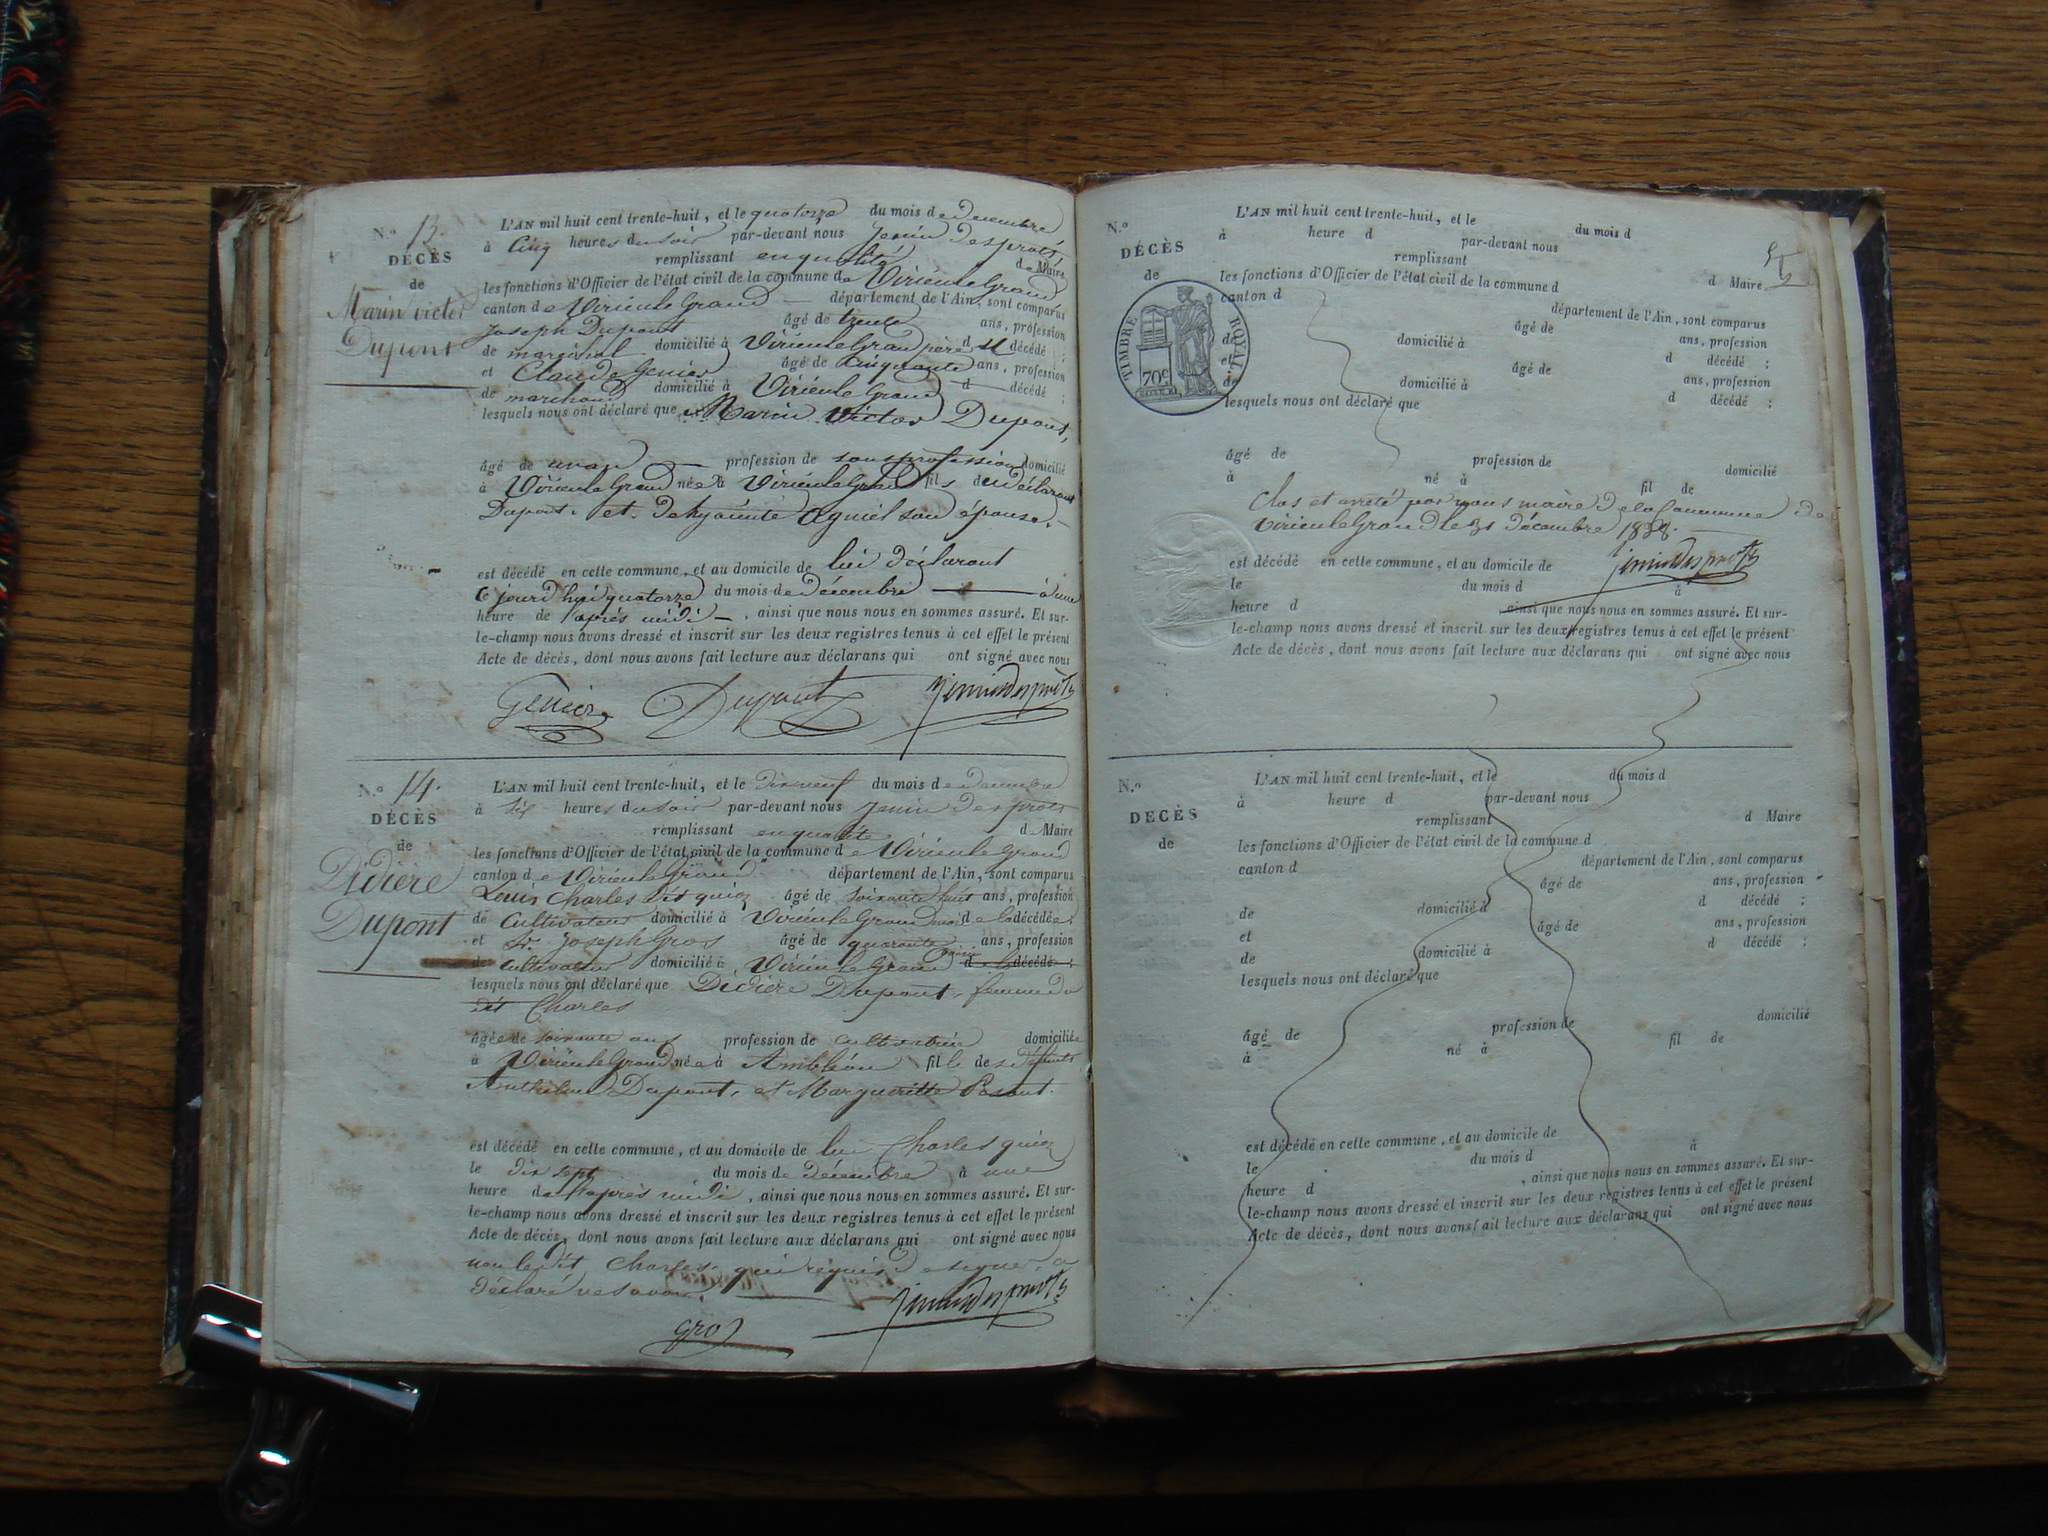 N.º 13.
DÉCÈS
de
Marin victor
Dupont
L'AN mil huit cent trente-huit, et le quatorze du mois de decembre
à Cinq heures du soir par-devant nous Jenin Desprots,
remplissant en qualité de Maire
les fonctions d'Officier de l'état civil de la commune de Virieu le Grand
canton de Virieu le Grand département de l'Ain, sont comparus
Joseph Dupont âgé de trente ans, profession
de maréchal domicilié à Virieu le Grand père d décédé ;
et Claude Genier âgé de Cinquante ans, profession
de marchand domicilié à Virieu le Grand d décédé ;
lesquels nous ont déclaré que Marin Victor Dupont,
âgé de un an profession de sans profession domicilié
à Virieu le Grand né à Virieu le Grand fils du déclarant
Dupont, et de hyacinte Aguiel son épouse.
est décédé en cette commune, et au domicile de lui déclarant
Ce jourd'hui quatorze du mois de décembre à une
heure de l'après midi, ainsi que nous nous en sommes assuré. Et sur-
le-champ nous avons dressé et inscrit sur les deux registres tenus à cet effet le présent
Acte de décès, dont nous avons fait lecture aux déclarans qui ont signé avec nous
Genier Dupont Jenin Desprots
N.º 14.
DÉCÈS
de
Didière
Dupont
L'AN mil huit cent trente-huit, et le dix neuf du mois de decembre
à six heures du soir par-devant nous Jenin Desprots
remplissant en qualité de Maire
les fonctions d'Officier de l'état civil de la commune de Virieu le Grand
canton de Virieu le Grand département de l'Ain, sont comparus
Louis Charles dit quioz âgé de soixante huit ans, profession
de Cultivateur domicilié à Virieu le Grand mari de la décédée ;
et Sr. Joseph Gros âgé de quarante ans, profession
de cultivateur domicilié à Virieu le Grand d décédé ;
lesquels nous ont déclaré que Didière Dupont, femme du
dit Charles
âgée de soixante ans profession de cultivatrice domiciliée
à Virieu le Grand née à Ambléon fille de défunts
Anthelme Dupont, et Margueritte
est décédé en cette commune, et au domicile de lui Charles quioz
le dix sept du mois de décembre à une
heure de l'après midi, ainsi que nous nous en sommes assuré. Et sur-
le-champ nous avons dressé et inscrit sur les deux registres tenus à cet effet le présent
Acte de décès, dont nous avons fait lecture aux déclarans qui ont signé avec nous
non ledit Charles qui requis de signer a
déclaré ne savoir.
Gros Jenin Desprots
N.º
DÉCÈS
de
TIMBRE ROYAL
70c
L'AN mil huit cent trente-huit, et le du mois d
à heure d par-devant nous
remplissant
les fonctions d'Officier de l'état civil de la commune d d Maire
canton d département de l'Ain, sont comparus
âgé de ans, profession
de domicilié à d décédé ;
et âgé de ans, profession
de domicilié à d décédé ;
lesquels nous ont déclaré que
âgé de profession de domicilié
à né à fil de
Clos et arrêté par nous maire de la Commune de
Virieu le Grand le 31 décembre 1838.
est décédé en cette commune, et au domicile de
Jenin Desprots
le du mois d à
heure d , ainsi que nous nous en sommes assuré. Et sur-
le-champ nous avons dressé et inscrit sur les deux registres tenus à cet effet le présent
Acte de décès, dont nous avons fait lecture aux déclarans qui ont signé avec nous
N.º
DECÈS
de
L'AN mil huit cent trente-huit, et le du mois d
à heure d par-devant nous
remplissant d Maire
les fonctions d'Officier de l'état civil de la commune d
canton d département de l'Ain, sont comparus
âgé de ans, profession
de domicilié à d décédé ;
et âgé de ans, profession
de domicilié à d décédé ;
lesquels nous ont déclaré que
âgé de profession de domicilié
à né à fil de
est décédé en cette commune, et au domicile de
le du mois d à
heure d , ainsi que nous nous en sommes assuré. Et sur-
le-champ nous avons dressé et inscrit sur les deux registres tenus à cet effet le présent
Acte de décès, dont nous avons fait lecture aux déclarans qui ont signé avec nous